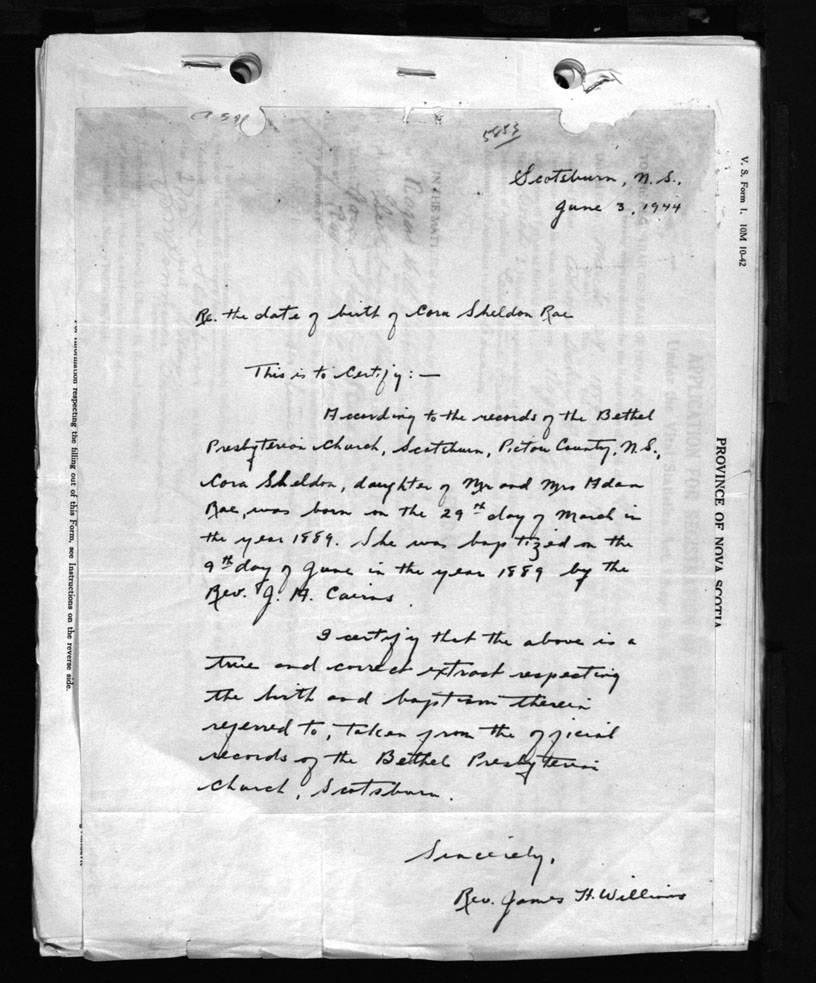 5853
Scotsburn, N.S.,
June 3, 1944
Re. the date of birth of Cora Sheldon Rae
This is to Certify:—
According to the records of the Bethel
Presbyterian Church, Scotsburn, Pictou County, N.S.,
Cora Sheldon, daughter of Mr and Mrs Adam
Rae, was born on the 29th day of March in
the year 1889. She was baptized on the
9th day of June in the year 1889 by the
Rev. J. H. Cairns.
I certify that the above is a
true and correct extract respecting
the birth and baptism therein
referred to, taken from the official
records of the Bethel Presbyterian
Church, Scotsburn.
Sincerely,
Rev. James H. Williams
V. S. Form 1. 10M 10-42
PROVINCE OF NOVA SCOTIA
For information respecting the filling out of this Form, see Instructions on the reverse side.